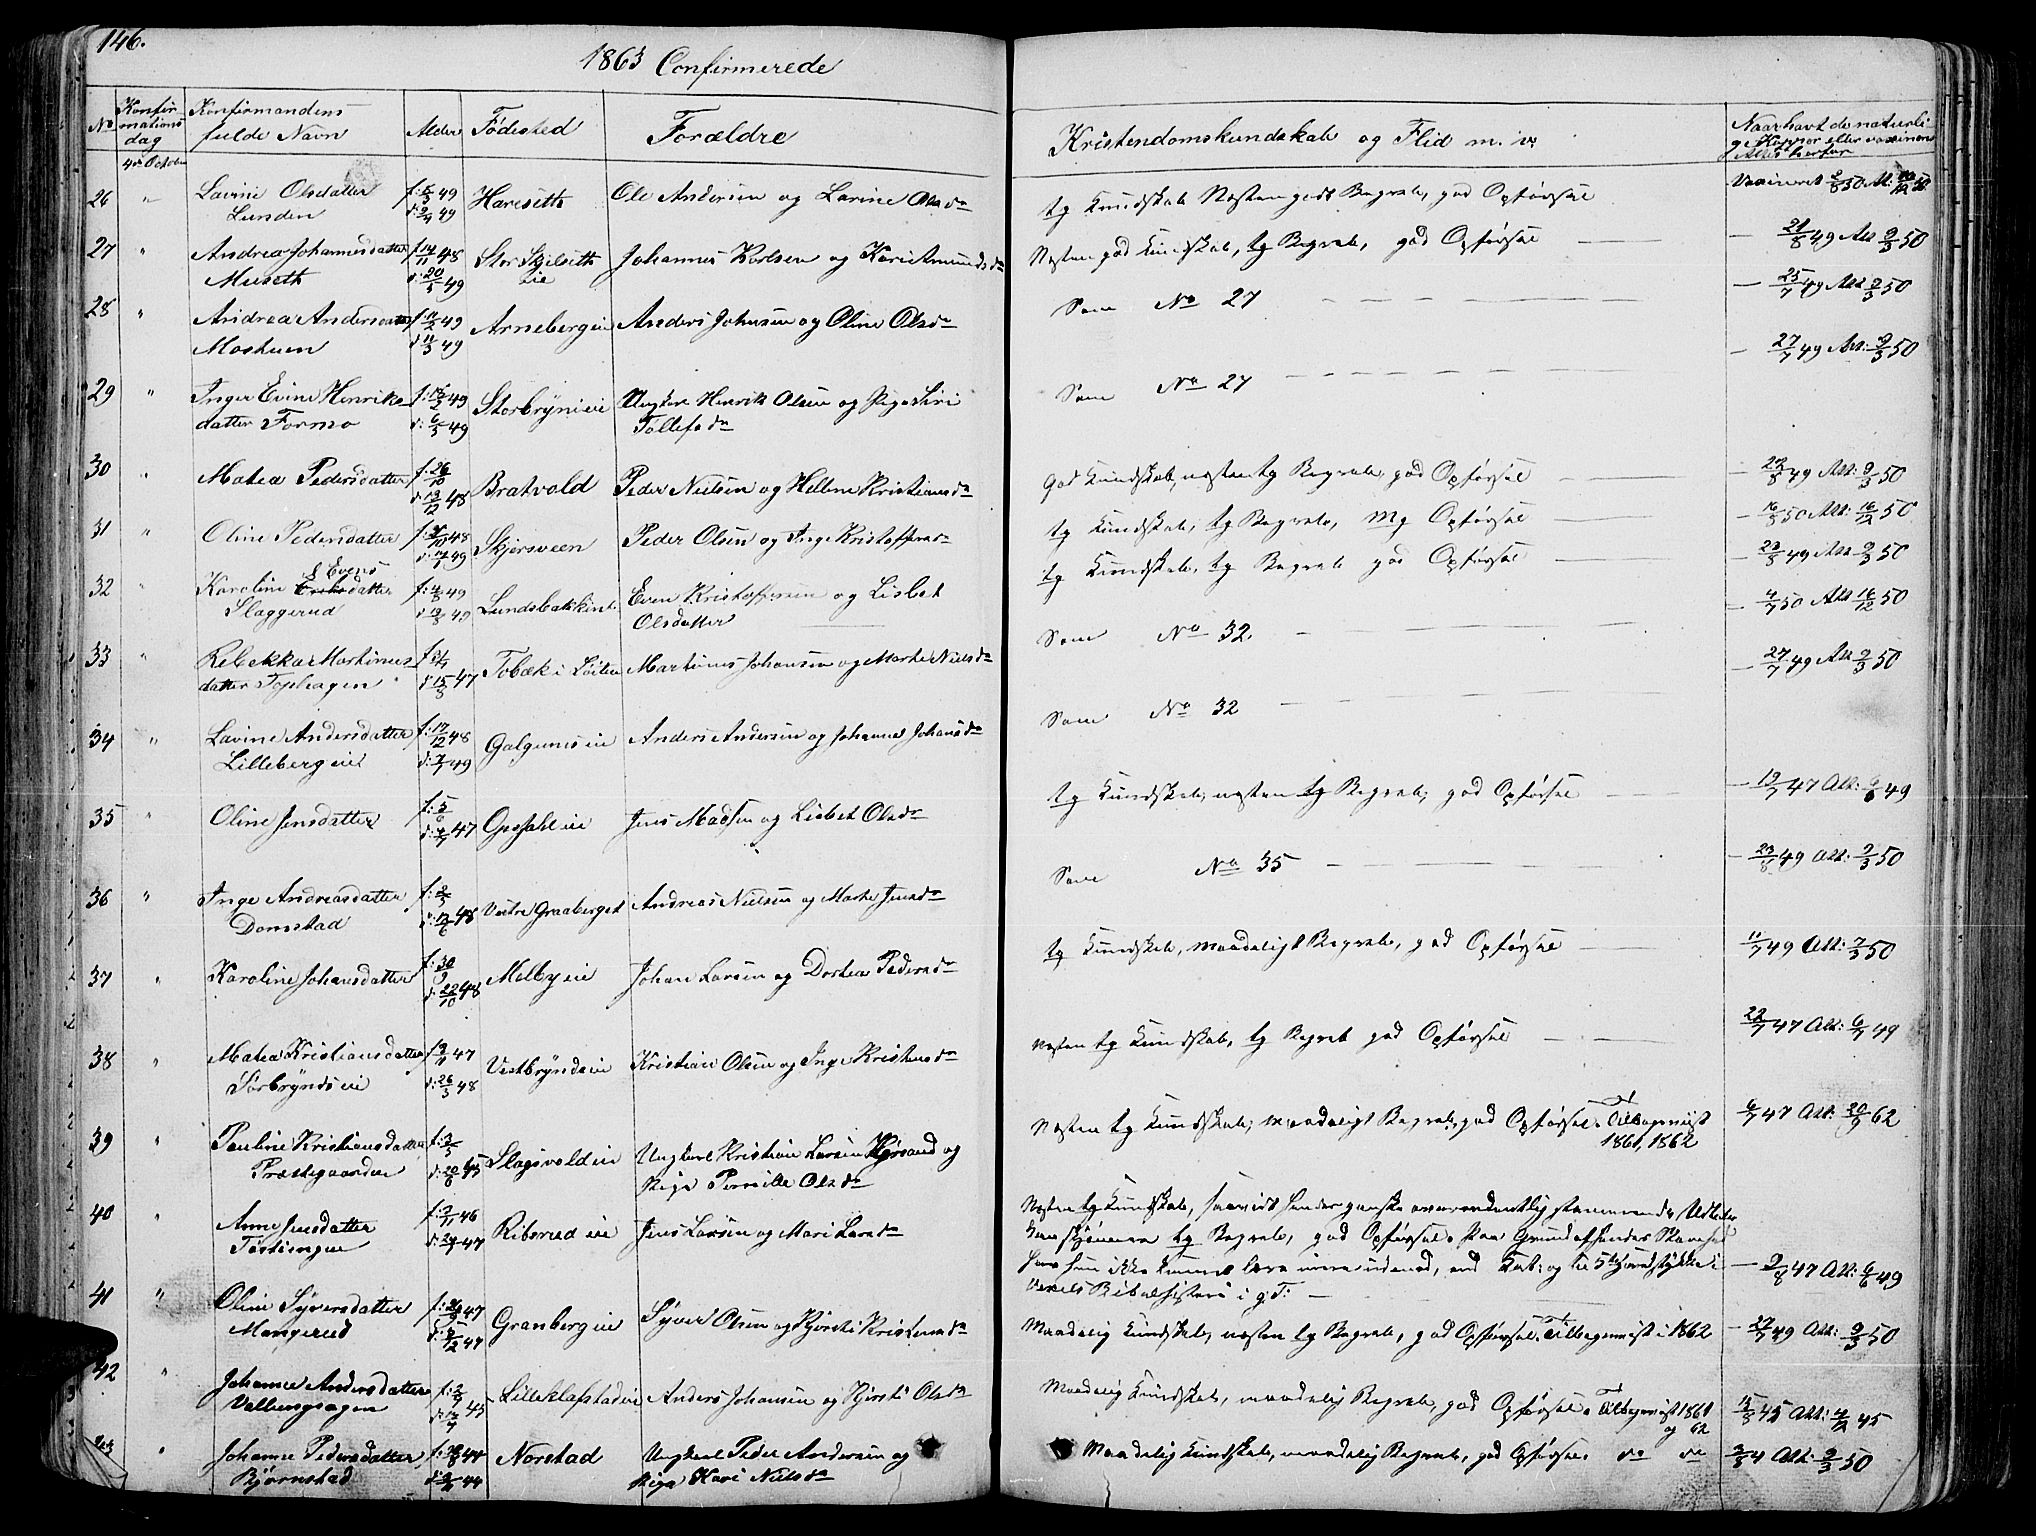 146.
1863 Confirmerede
No
Konfir
mations
dag
Konfirmandens
fulde Navn
Alder
Fødested
Forældre
Kristendomskundskab og Flid m. v.
Naar havt de naturli
ge Kopper eller vaxineret
4de October
26 " Lavine Olsdatter
Lunden
49
49
Haresetth
Ole Andersen og Larine Olsdr
tg Kundskab Næsten godt Begreb, god Opførsel
Vaxineret
27 " Andrea Johannesdatter
Museth
f: 14/11 48
d: 20/5 49
Stor Skjelseth
eie
Johannes Karlsen og Kari Amundsdr
Næsten god Kundskab, tg Begreb, god Opførsel
21/8 49 Att 9/3 50
28 " Andrea Andersdatter
Moshuen
49
d: 11/3 49
Arneberg eie
Anders Johnsen og Oline Olsdr
Som No 27
25/7 49 Att 9/3 50
29 " Inger Evine Henriks
datter Formo
49
d: 6/5 49
Storbryn eie
Ungkarl Henrik Olsen og Pige Siri
Tollefsdr
Som No 27
27/7 49 Att: 9/3 50
30 " Matea Pedersdatter
f: 26/10
d: 12/12 48
Bratvold
Peder Nielsen og Hellene Kristiansdr
God Kundskab, næsten tg Begreb, god Opførsel
49 Att: 9/3 50
31 " Oline Pedersdatter
48
49
Skjørsveen
Peder Olsen og Inge Kristoffersdr
tg Kundskab, tg Begreb, Mg Opførsel
50 Att: 16/12 50
32 " Karoline Evens
datter
Slaggerud
49
49
Lundsbakkin
Even Kristoffersen og Lisbet
Olsdatter
tg Kundskab, tg Begreb god Opførsel
49 Att 9/3 50
33 " Rebekka Martinus
datter Tophagen
47
Tobæk i Løiten
Martinus Johansen og Marte Nielsdr
Som No 32.
4/7 50 Att 16/12 50
34 " Lavine Andersdatter
Lilleberg eie
f: 17/12 48
49
Galgum eie
Anders Andersen og Johanne Johansdr
Som No 32
27/7 49 Att 9/3 50
35 " Oline Jensdatter
f: 5/6
47
Opsahl eie
Jens Madsen og Lisbet Olsdr
tg Kundskab, næsten tg Begreb, god Opførsel
19/7 47 Att: 49
36 " Inge Andreasdatter
Domstad
48
Vestre Graaberget
Andreas Nielsen og Marte Jensdr
Som No 35
49 Att: 9/3 50
37 " Karoline Johansdatter
f: 30/9
d: 22/10 48
Melby eie
Johan Larsen og Dortea Pedersdr
tg Kundskab, maadeligt Begreb, god Opførsel
11/7 49 Att: 9/3 50
38 " Matea Kristiansdatter
Sørbrynds eie
47
d: 26/3 48
Vestbrynds eie
Kristian Olsen og Inge Kristensdr
Næsten tg Kundskab, tg Begreb god Opførsel
22/7 47 Att: 6/7 49
39 " Pauline Kristiansdatter
Præstegaarden
Slagsvold eie
Ungkarl Kristian Larsen og
Pige Pernille Olsdr
Næsten tg Kundskab, maadeligt Begreb, god Opførsel. Tilbagevist
1861, 1862
47 Att: 62
40 " Anne Jensdatter
46
47
Riberud eie
Jens Larsen og Mari Larsdr
Næsten tg Kundskab, saavidt hendes ganske overordentlig stammende Udtale
kan skjønnes tg Begreb, god Opførsel. Paa Grund af hendes Stammen
har hun ikke kunnet lære mere udenad, end Kat: og
Bibelhistorie i g: T:
47 Att: 49
41 " Oline Syversdatter
Mangerud
47
47
Granberg eie
Syver Olsen og Kjersti Kristensdr
Maadelig Kundskab, næsten tg Begreb, god Opførsel. Tilbagevist i 1862
27/7 49 Att: 9/3 50
42 " Johanne Andersdatter
45
Lilleklafstad eie
Anders Johansen og Kjersti Olsdr
Maadelig Kundskab, maadelig Begreb, god Opførsel. Tilbagevist 1861
og 62
45 Att: 45
" Johanne Pedersdatter
Bjørnstad
44
44
Norstad
Ungkarl Peder Andersen og
Pige Kari Nielsdr
Maadelig Kundskab, maadelig Begreb, god Opførsel. do do
Att: 9/3 50